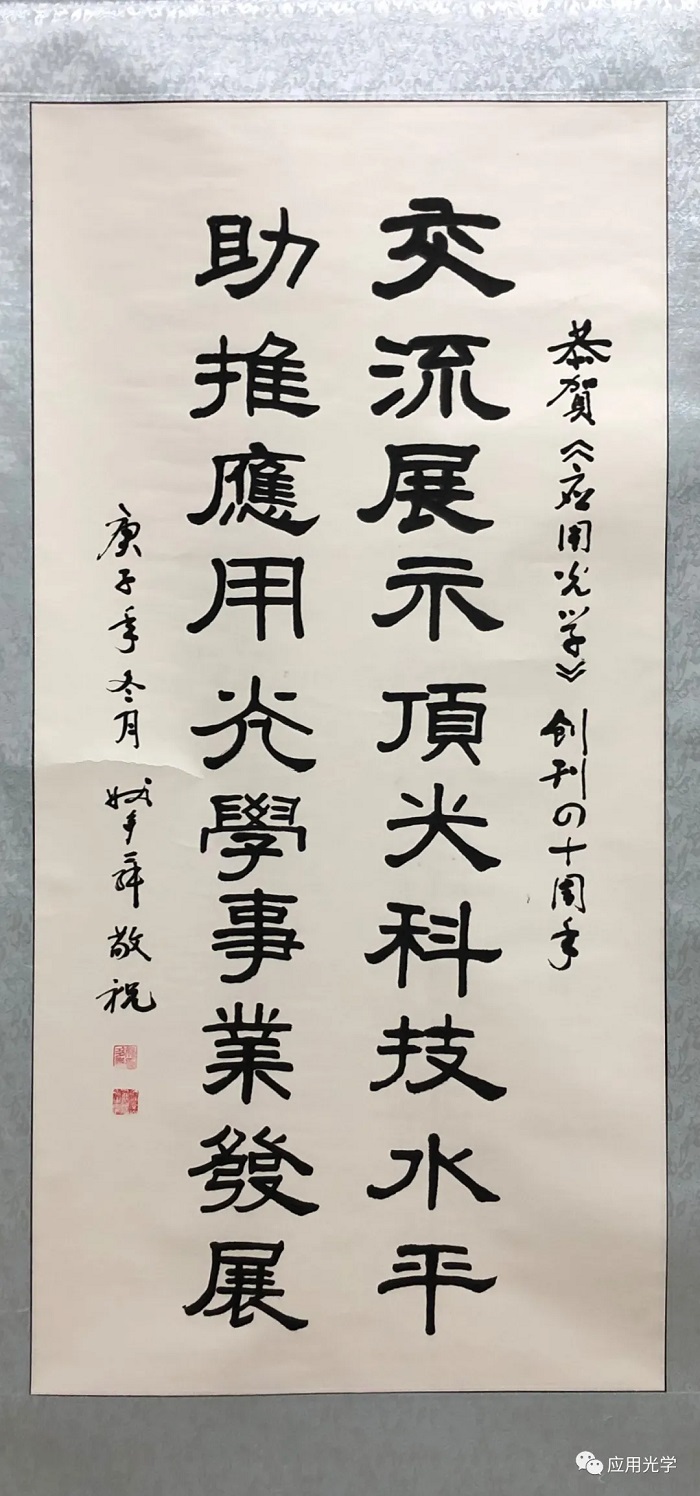 恭賀《应用光学》創刊四十周年
交流展示頂尖科技水平
助推應用光學事業發展
庚子年冬月 姚多舜 敬祝
应用光学